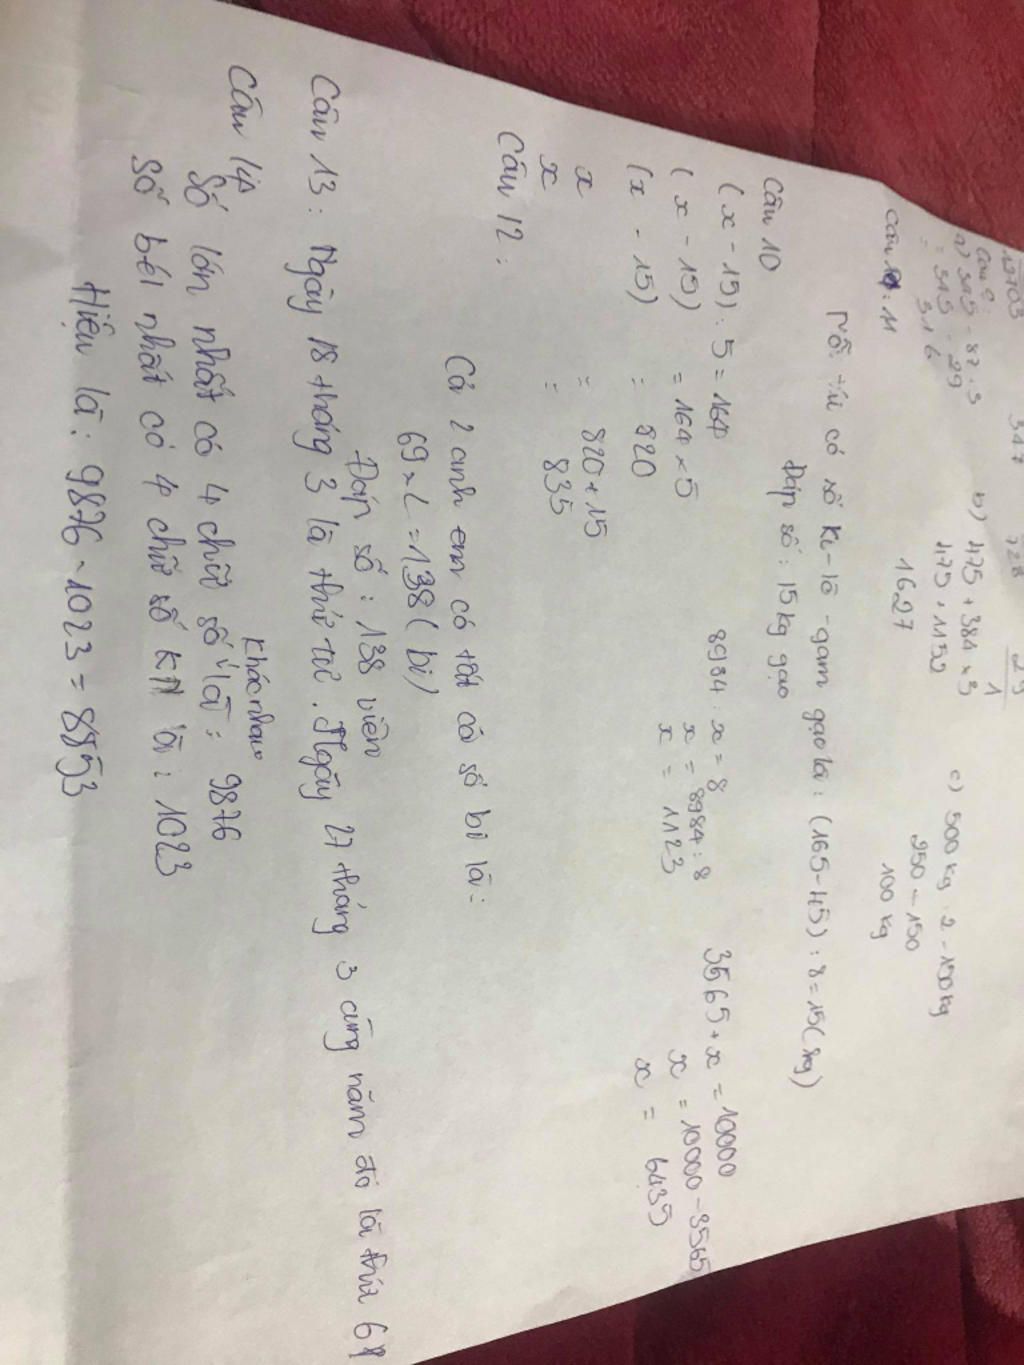 12703
347
728
29
1
Câu 9:
a) 345 - 87 : 3
= 345 - 29
= 316
b) 475 + 384 x 3
475 + 1152
1627
c) 500 kg : 2 - 150 kg
250 - 150
100 kg
Câu 11
Mỗi túi có số ki-lô-gam gạo là: (165-45) : 8 = 15 (kg)
Đáp số: 15 kg gạo
Câu 10
(x - 15) : 5 = 164
(x - 15) = 164 x 5
(x - 15) = 820
x = 820 + 15
x = 835
8984 : x = 8
x = 8984 : 8
x = 1123
3565 + x = 10000
x = 10000 - 3565
x = 6435
Câu 12:
Cả 2 anh em có tất cả số bi là:
69 x 2 = 138 (bi)
Đáp số: 138 viên
Câu 13: Ngày 18 tháng 3 là thứ tư. Ngày 27 tháng 3 cũng năm đó là thứ 6
Câu 14
Số lớn nhất có 4 chữ số khác nhau là: 9876
Số béi nhất có 4 chữ số KN là: 1023
Hiệu là: 9876 - 1023 = 8853